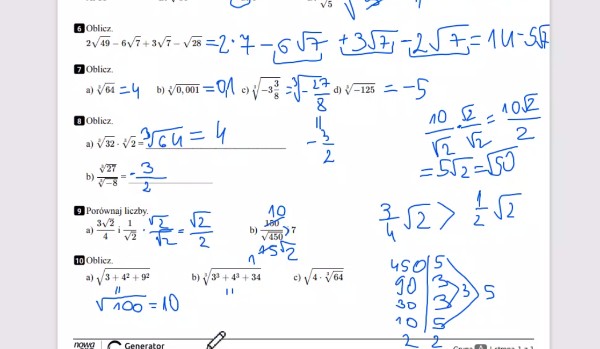 √5
6 Oblicz.
2√49 − 6√7 + 3√7 − √28 = 2·7 − 6√7 + 3√7 − 2√7 = 14 − 5√7
7 Oblicz.
a) ∛64 = 4 b) ∛0,001 = 0,1 c) ∛−3 3/8 = ∛−27/8 d) ∛−125 = −5
= −3/2
8 Oblicz.
a) ∛32 · ∛2 = ∛64 = 4
b) ∛27/∛−8 = −3/2
10/√2 · √2/√2 = 10√2/2
= 5√2 = √50
9 Porównaj liczby.
a) 3√2/4 i 1/√2 · √2/√2 = √2/2 b) 150/√450 > 7
10
15√2
3/4 √2 > 1/2 √2
10 Oblicz.
a) √3 + 4² + 9² b) ∛3³ + 4³ + 34 c) √4 · ∛64
= √100 = 10
=
450 | 5
90 | 3
30 | 3
10 | 5
2 | 2
3 5
nowa Generator